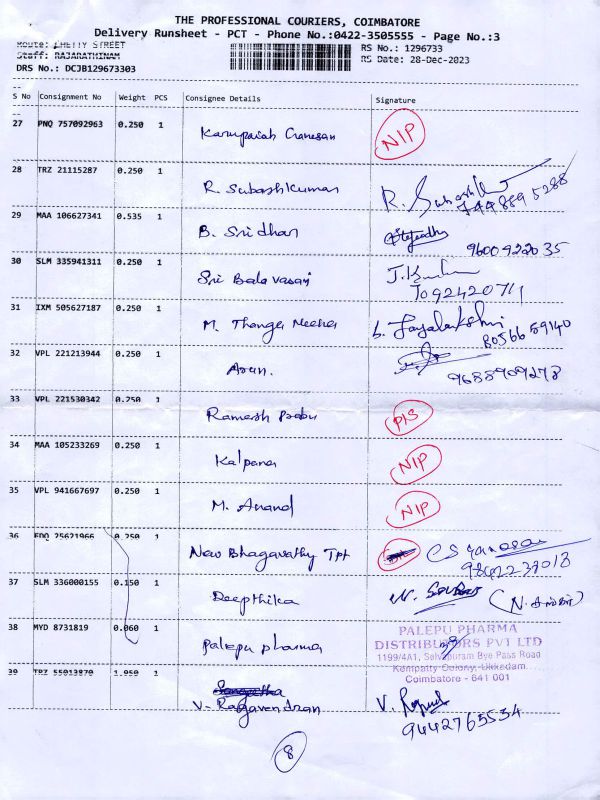 THE PROFESSIONAL COURIERS, COIMBATORE
Delivery Runsheet - PCT - Phone No.:0422-3505555 - Page No.:3
Route: CHETTY STREET RS No.: 1296733
Staff: RAJARATHINAM RS Date: 28-Dec-2023
DRS No.: DCJB129673303
S No Consignment No Weight PCS Consignee Details Signature
27 PNQ 757092963 0.250 1
Karuppaiah Ganesan NIP
28 TRZ 21115287 0.250 1
R. Subashkumar
29 MAA 106627341 0.535 1
B. Sridhar
9600922035
30 SLM 335941311 0.250 1
Sri Bala vasavi
7092420711
31 IXM 505627187 0.250 1
M. Thanga Meena
8056659140
32 VPL 221213944 0.250 1
Arun.
9685909278
33 VPL 221530342 0.250 1
Ramesh babu
34 MAA 105233269 0.250 1
Kalpana NIP
35 VPL 941667697 0.250 1
M. Anand NIP
36 EDQ 25621966 0.250 1
New Bhagavathy Tpt
37 SLM 336000155 0.150 1
Deepthika
38 MYD 8731819 0.060 1
Palepu pharma
PALEPU PHARMA
DISTRIBUTORS PVT LTD
1199/4A1, Selvapuram Bye Pass Road
Kempatty Colony, Ukkadam
Coimbatore - 641 001
39 TRZ 55013870 1.950 1
Sangeetha
V. Ragavendran
9442765534
8